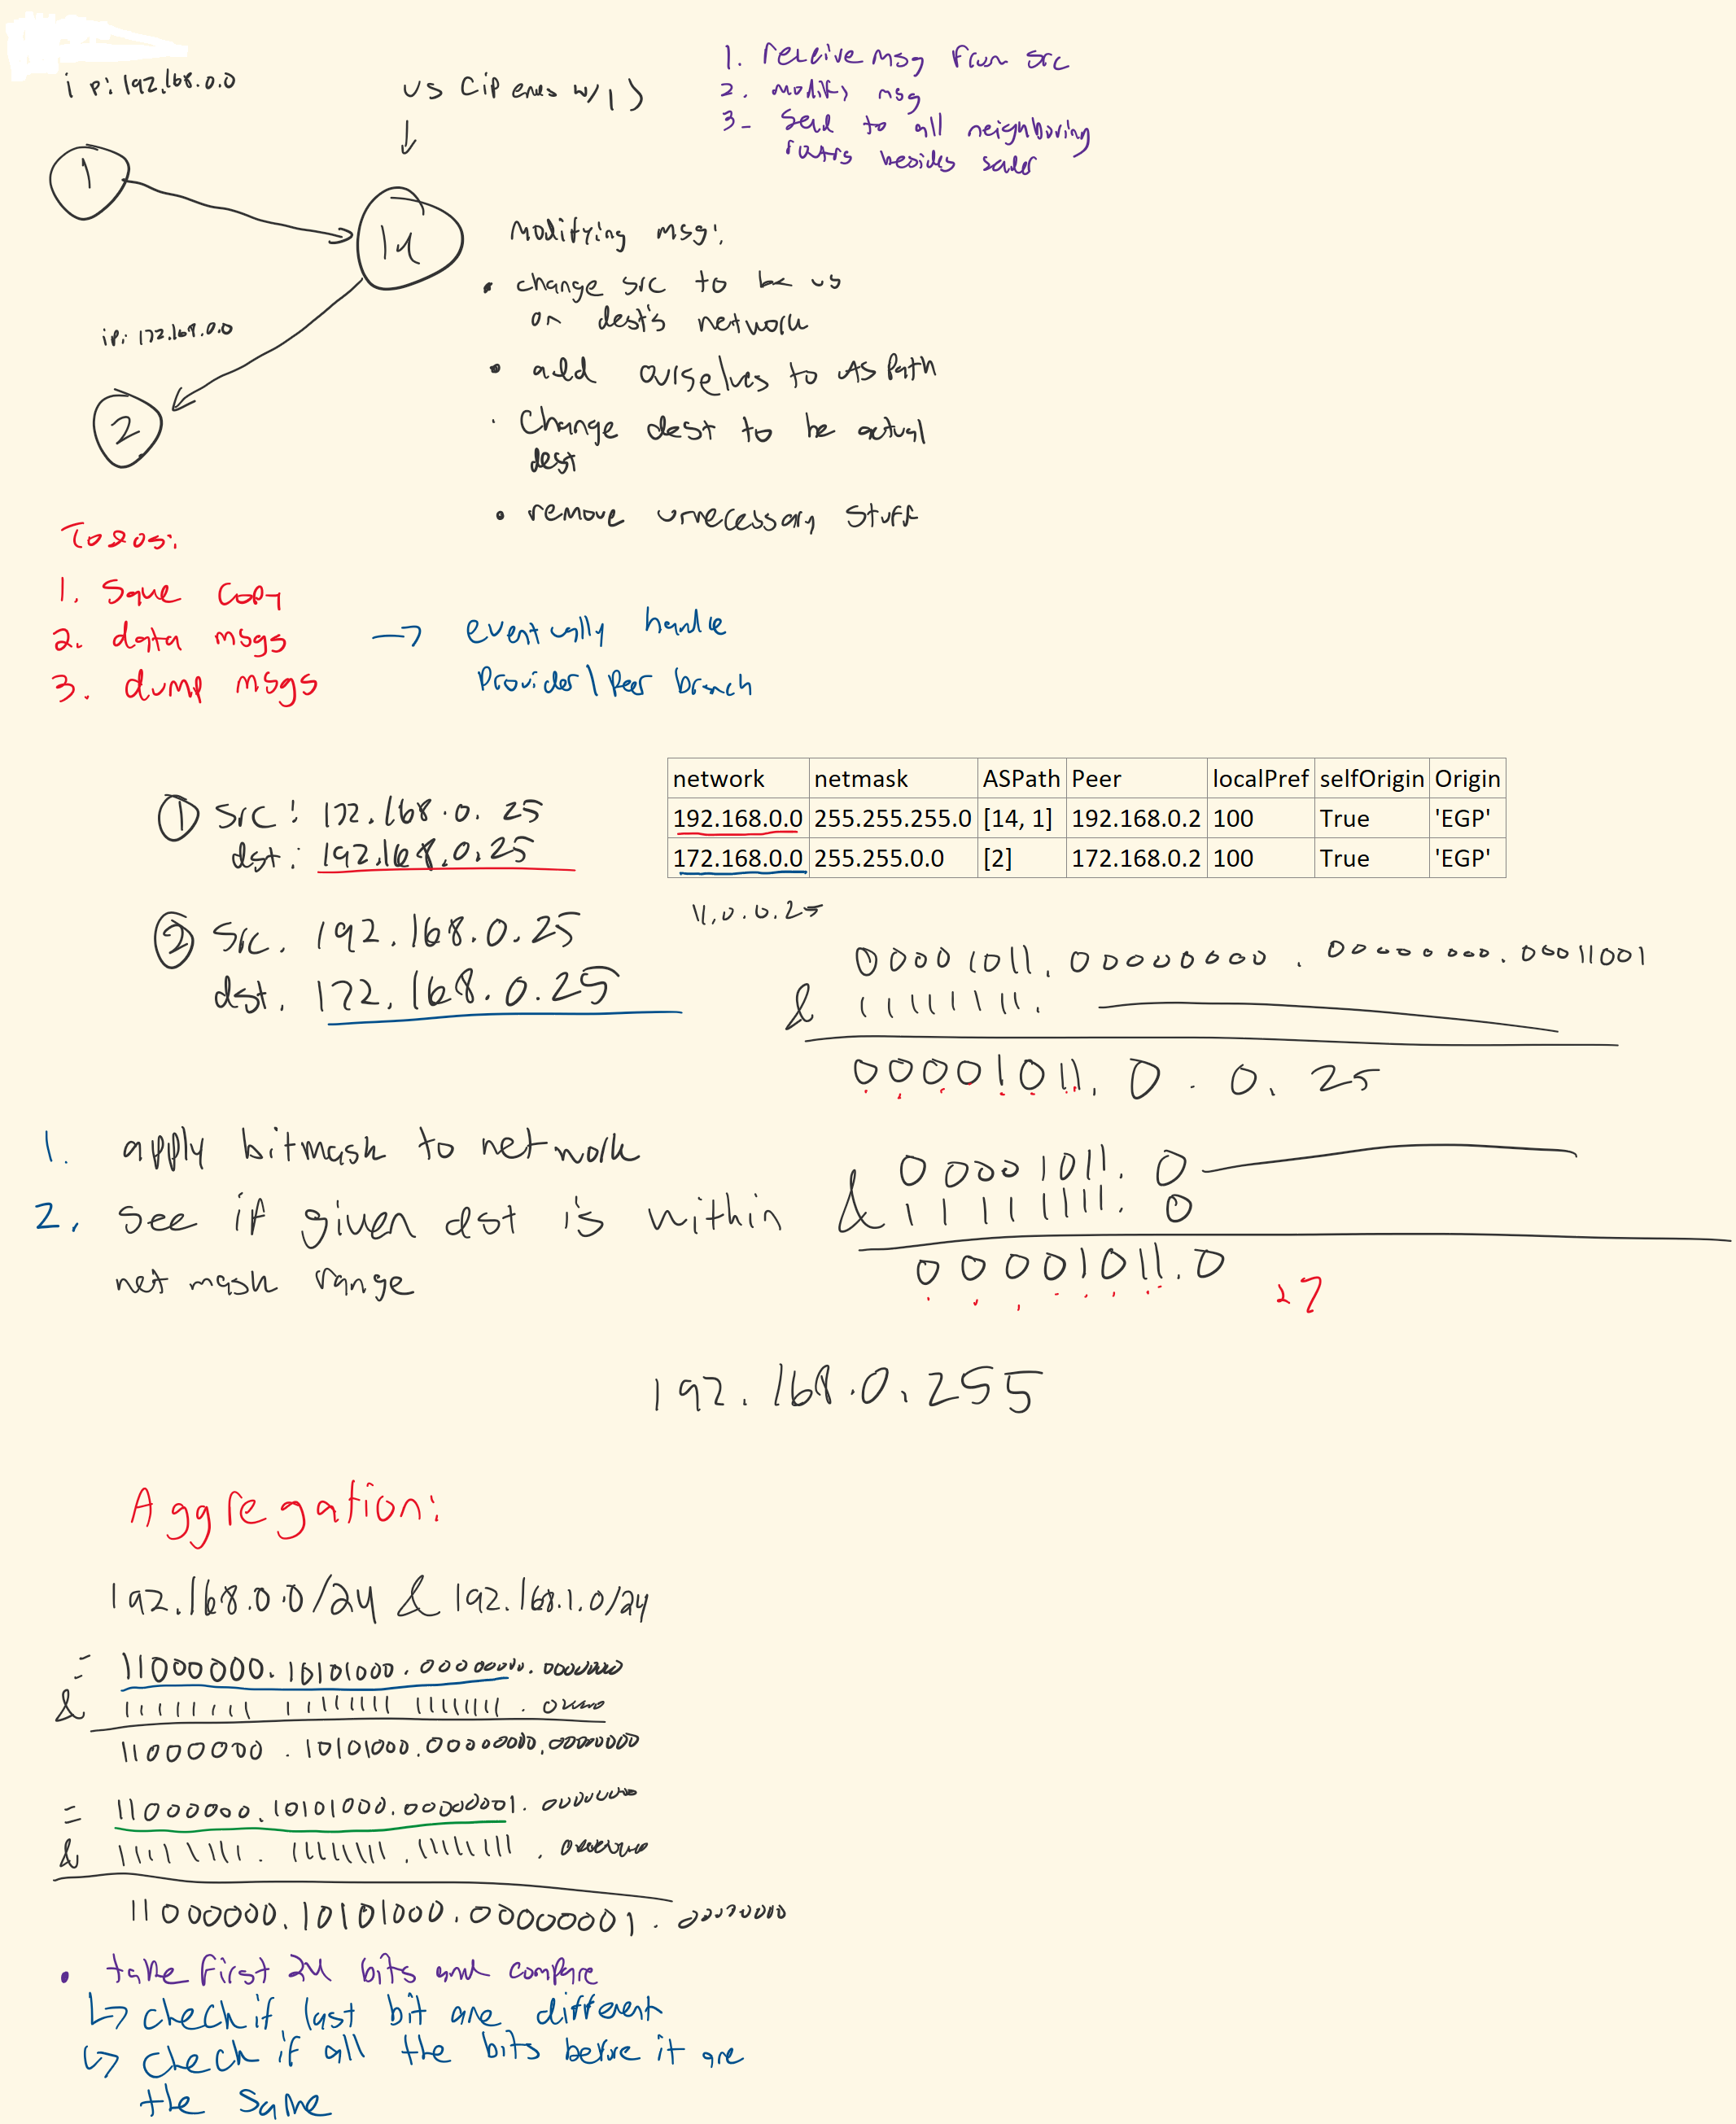 ip: 192.168.0.0
us (ip ends w/1)
1. receive msg from src
2. modify msg
3- send to all neighboring
routrs besides sender
1
14
ip: 172.168.0.0
2
Modifying msg:
• change src to be us
on dest's network
• add ourselves to AS Path
• Change dest to be actual
dest
• remove unnecessary stuff
Todos:
1. Save copy
2. data msgs → eventually handle
3. dump msgs Provider/Peer branch
network netmask ASPath Peer localPref selfOrigin Origin
192.168.0.0 255.255.255.0 [14, 1] 192.168.0.2 100 True 'EGP'
172.168.0.0 255.255.0.0 [2] 172.168.0.2 100 True 'EGP'
① src: 172.168.0.25
dst: 192.168.0.25
② Src. 192.168.0.25
dst. 172.168.0.25
11.0.0.25
00001011.00000000.00000000.00011001
& 11111111.
00001011.0.0.25
1. apply bitmask to network
2. see if given dst is within
netmask range
00001011.0
& 11111111.0
00001011.0
27
192.168.0.255
Aggregation:
192.168.0.0/24 & 192.168.1.0/24
= 11000000.10101000.00000000.00000000
& 11111111 11111111 11111111.00000
11000000.10101000.00000000.00000000
= 11000000.10101000.00000001.00000000
& 11111111.11111111.11111111.00000000
11000000.10101000.00000001.00000000
• take first 24 bits and compare
↳ check if last bit are different
↳ check if all the bits before it are
the same